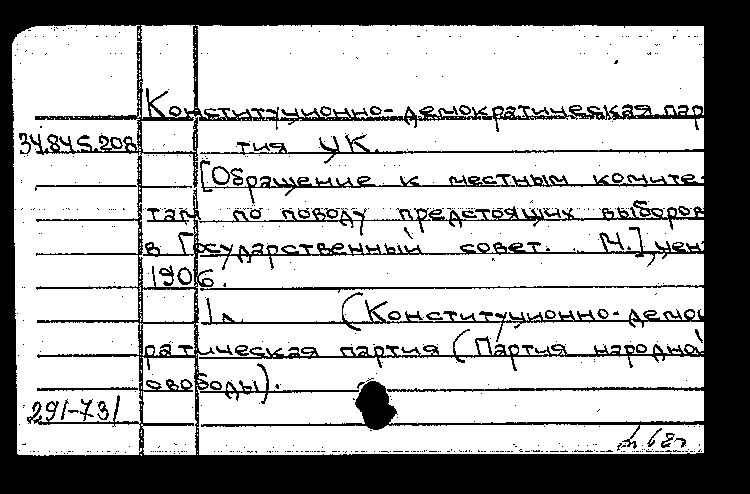 Конституционно-демократическая пар
34.845.208 тия ЦК.
[Обращение к местным комите-
там по поводу предстоящих выборов
в Государственный совет. М.], цен
1906.
1 л. (Конституционно-демок
ратическая партия (Партия народной
свободы).
291-731